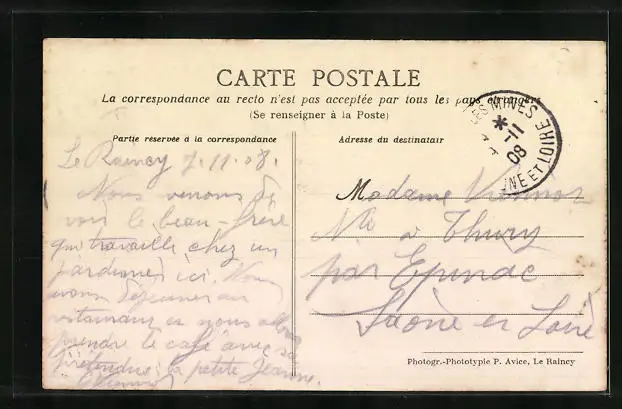 CARTE POSTALE
La correspondance au recto n'est pas acceptée par tous les pays étrangers
(Se renseigner à la Poste)
Partie réservée à la correspondance
Le Raincy 7.11.08.
Nous venons de
voir le beau-frère
qui travaille chez un
jardinier ici. Nous
avons déjeuner au
restaurant et nous allons
prendre le café avec sa
prétendue, la petite Jeanne.
Adresse du destinatair
Madame
à Thury
par Epinac
Saône et Loire
LES MINES
11
08
NE ET LOIRE
Photogr.-Phototypie P. Avice, Le Raincy